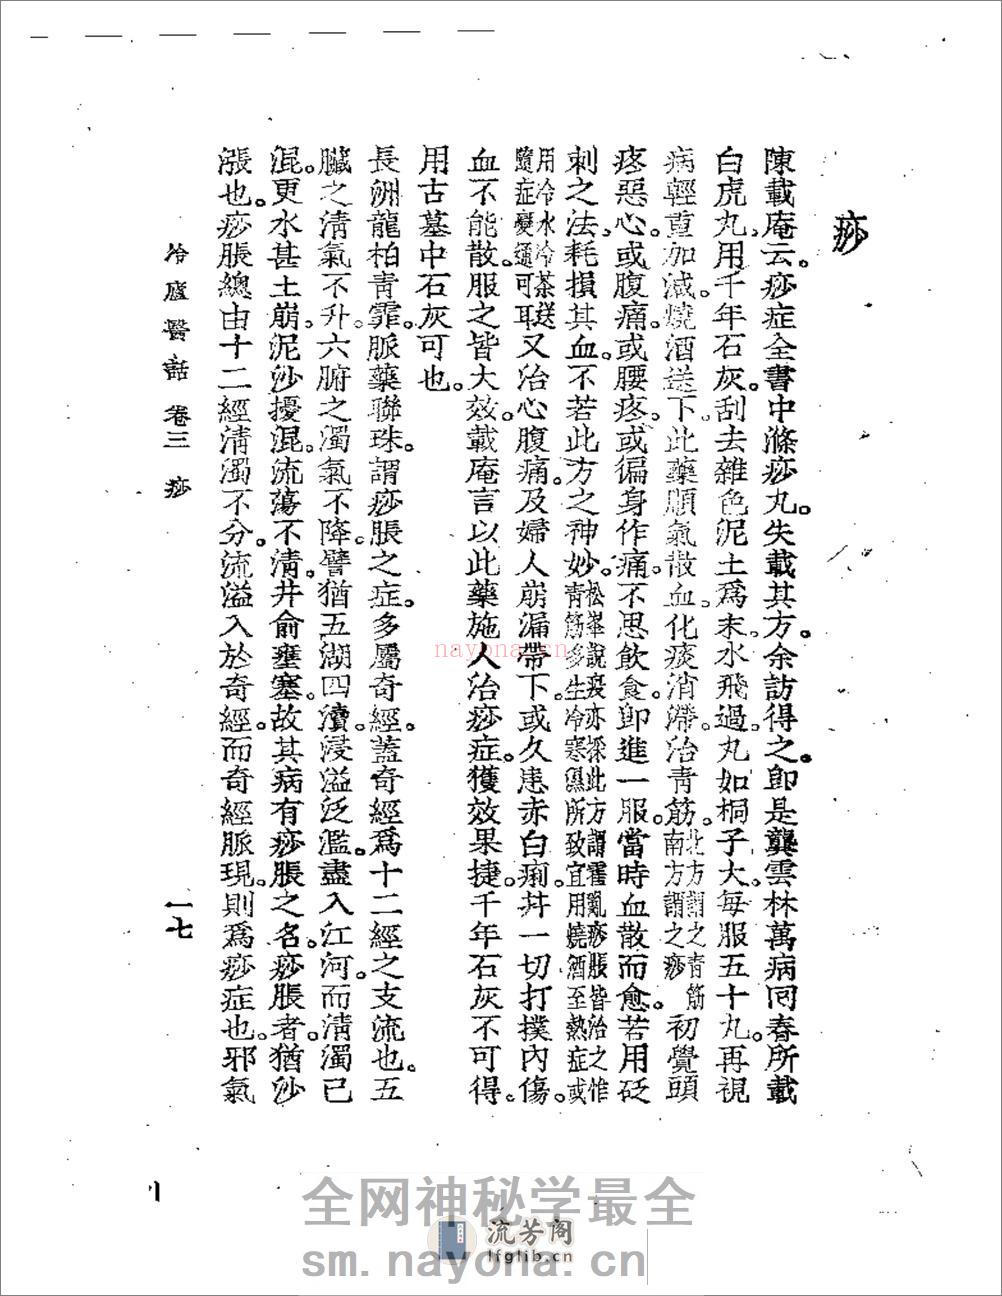 痧
陳載庵云。痧症全書中滌痧丸。失載其方。余訪得之。卽是龔雲林萬病囘春所載
白虎丸。用千年石灰。刮去雜色泥土爲末。水飛過。丸如桐子大。每服五十丸。再視
病輕重加減。燒酒送下。此藥順氣散血。化痰消滯。治青筋。北方謂之青筋南方謂之痧初覺頭
疼惡心。或腹痛。或腰疼。或徧身作痛。不思飲食。卽進一服。當時血散而愈。若用砭
刺之法。耗損其血。不若此方之神妙。松峯說疫亦採此方謂霍亂痧脹皆治之惟青筋多生冷寒濕所致宜用燒酒至熱症或
用冷水冷茶送隨症變通可耳又治心腹痛。及婦人崩漏帶下。或久患赤白痢。幷一切打撲內傷。
血不能散。服之皆大效。載庵言以此藥施人治痧症。獲效果捷。千年石灰不可得。
用古墓中石灰可也。
長洲龍柏青霏。脈藥聯珠。謂痧脹之症。多屬奇經。蓋奇經爲十二經之支流也。五
臟之淸氣不升。六腑之濁氣不降。譬猶五湖四瀆。浸溢泛濫。盡入江河。而淸濁已
混。更水甚土崩。泥沙擾混。流蕩不淸。井俞壅塞。故其病有痧脹之名。痧脹者。猶沙
漲也。痧脹總由十二經淸濁不分。流溢入於奇經。而奇經脈現。則爲痧症也。邪氣
冷廬醫話 卷三 痧
一七
nayona.cn
全网神秘学最全
流芳阁
lfglib.cn
sm.nayona.cn